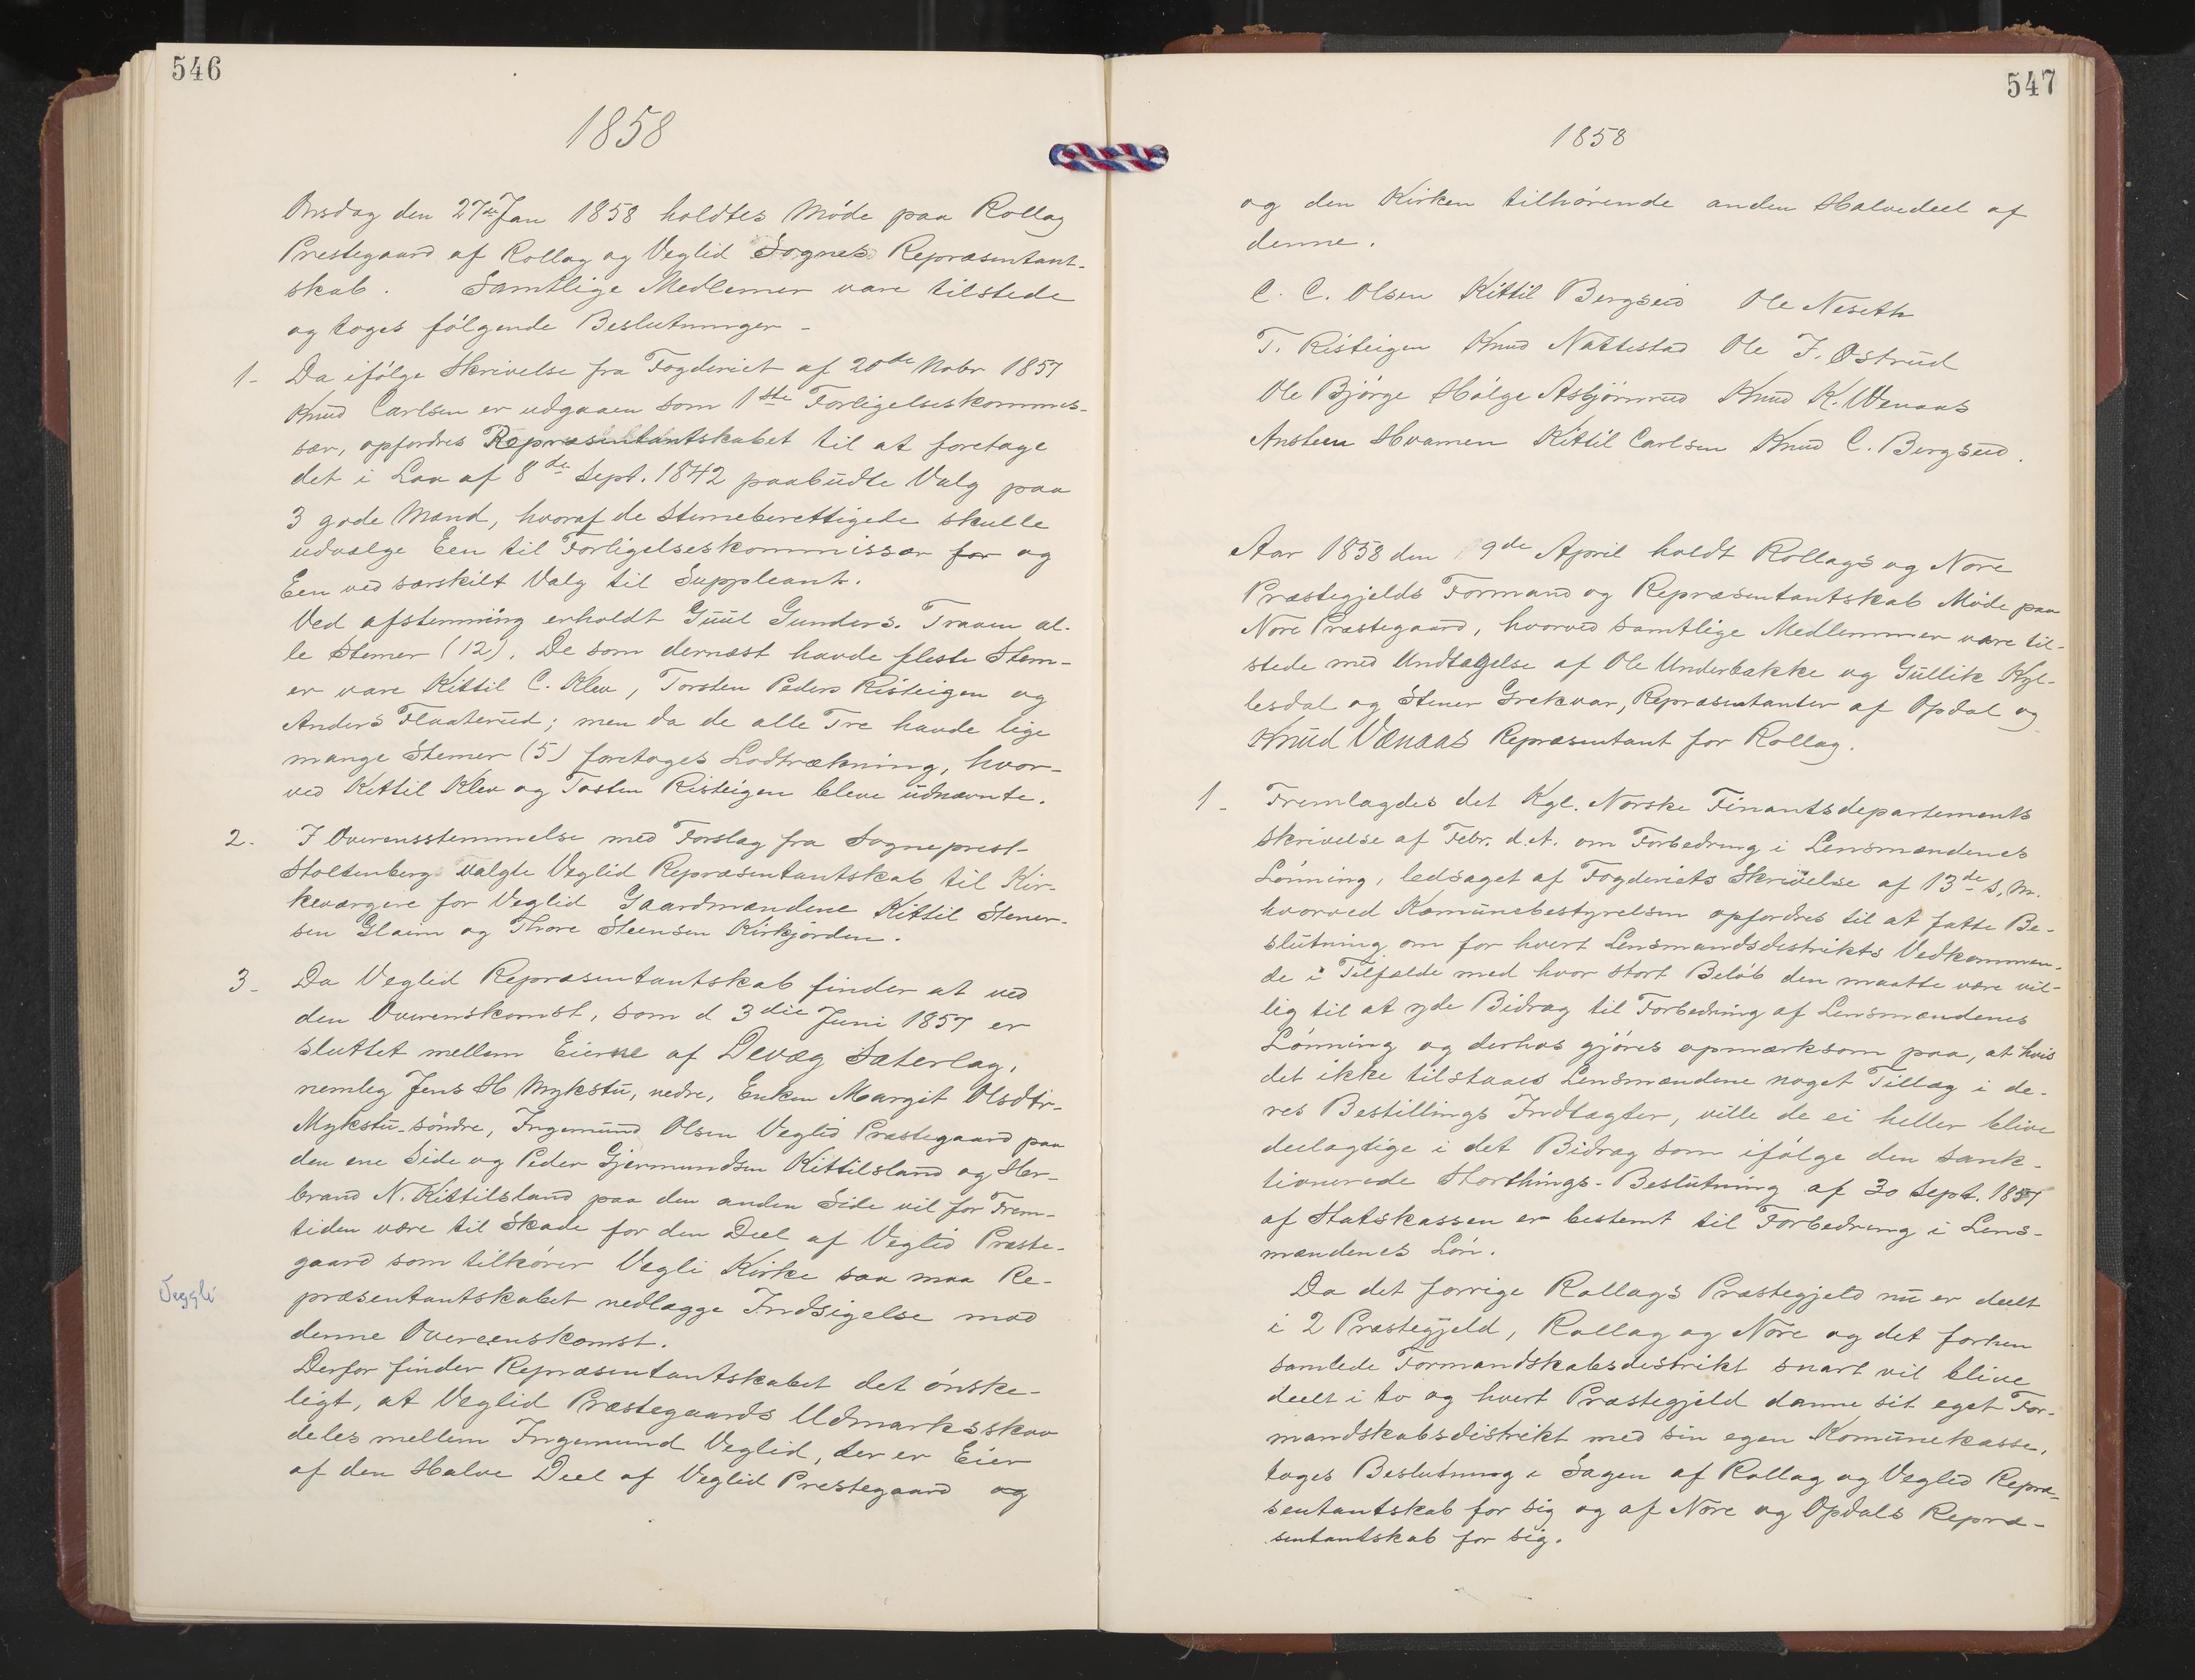 546
1858
Onsdag den 27de Jan 1858 holdtes Møde paa Rollag
Prestegaard af Rollag og Veglid Sognes Repræsentant-
skab. Samtlige Medlemer vare tilstede
og toges følgende Beslutninger -
1- Da ifølge Skrivelse fra Fogderiet af 20de Nobr 1857
Knud Carlsen er udgaaen som 1ste Forligelseskommis-
sær, opfordres Repræsentantskabet til at foretage
det i Lov af 8de Sept. 1842 paabudte Valg paa
3 gode Mænd, hvoraf de Stemeberettigede skulle
udvælge Een til Forligelseskommissær for og
Een ved særskilt Valg til Suppleant.
Ved afstemning erholdt Guul Gunders. Traaen al-
le Stemer (12). De som dernæst havde fleste Stem-
er vare Kittil C. Klev, Torsten Peders Risteigen og
Anders Flaaterud; men da de alle Tre havde lige
mange Stemer (5) foretoges Lodtrækning, hvor-
ved Kittil Klev og Tosten Risteigen bleve udnævnte.
2. I Overensstemmelse med Forslag fra Sogneprest
Stoltenberg valgte Veglid Repræsentantskab til Kir-
keværgere for Veglid Gaardmændene Kittil Stener-
sen Glaim og Thore Steensen Kirkjorden.
3- Da Veglid Repræsentantskab finder at ved
den Overenskomst, som d 3die Juni 1857 er
sluttet mellem Eierne af Devæg Sæterlag,
nemleg Jens H Mykstu, nedre, Enken Margit Olsdtr-
Mykstu-søndre, Ingemund Olsen Veglid Præstegaard paa
den ene Side og Peder Gjermundsen Kittilsland og Her-
brand N. Kittilsland paa den anden Side vil for Frem-
tiden være til Skade for den Deel af Veglid Præste-
gaard som tilhører Vegli Kirke saa maa Re-
Veggli
præsentantskabet nedlægge Indsigelse mod
denne Overeenskomst.
Derfor finder Repræsentantskabet det ønske-
ligt, at Veglid Præstegaards Udmarksskov
deles mellem Ingemund Veglid, der er Eier
af den Halve Deel af Veglid Prestegaard og
547
1858
og den Kirken tilhørende anden Halvedeel af
denne.
C. C. Olsen Kittil Bergseid Ole Neseth
T. Risteigen Knud Nattestad Ole J. Østrud
Ole Bjørge Hølge Asbjørnrud Knud K. Wenaas
Ansteen Hvamen Kittil Carlsen Knud C. Bergseid.
Aar 1858 den 9de April holdt Rollags og Nore
Præstegjelds Formand og Repræsentantskab Møde paa
Nore Præstegaard, hvorved samtlige Medlemmer vare til-
stede med Undtagelse af Ole Underbakke og Gullik Kyl-
lesdal og Stener Grekvar, Repræsentanter af Opdal og
Knud Vænaas Repræsentant for Rollag.
1- Fremlagdes det Kgl. Norske Finantsdepartements
Skrivelse af Febr. d.A. om Forbedring i Lensmændenes
Lønning, ledsaget af Fogderiets Skrivelse af 13de s. M.
hvorved Komunebestyrelsen opfordres til at fatte Be-
slutning om for hvert Lensmandsdistrikts Vedkommen-
de i Tilfælde med hvor stort Beløb den maatte være vil-
lig til at yde Bidrag til Forbedring af Lensmændenes
Lønning og derhos gjøres opmærksom paa, at hvis
det ikke tilstaaes Lensmændene noget Tillæg i de-
res Bestillings Indtægter, ville de ei heller blive
deelagtige i det Bidrag som ifølge den sank-
tionerede Storthings-Beslutning af 30 Sept. 1857
af Statskassen er bestemt til Forbedring i Lens-
mændenes Løn.
Da det forrige Rollags Præstegjeld nu er deelt
i 2 Præstegjeld, Rollag og Nore og det forhen
samlede Formandskabsdistrikt snart vil blive
deelt i to og hvert Præstegjeld danne sit eget For-
mandskabsdistrikt med sin egen Komunekasse,
toges Beslutning i Sagen af Rollag og Veglid Repræ-
sentantskab for sig og af Nore og Opdals Repræ-
sentantskab for sig.